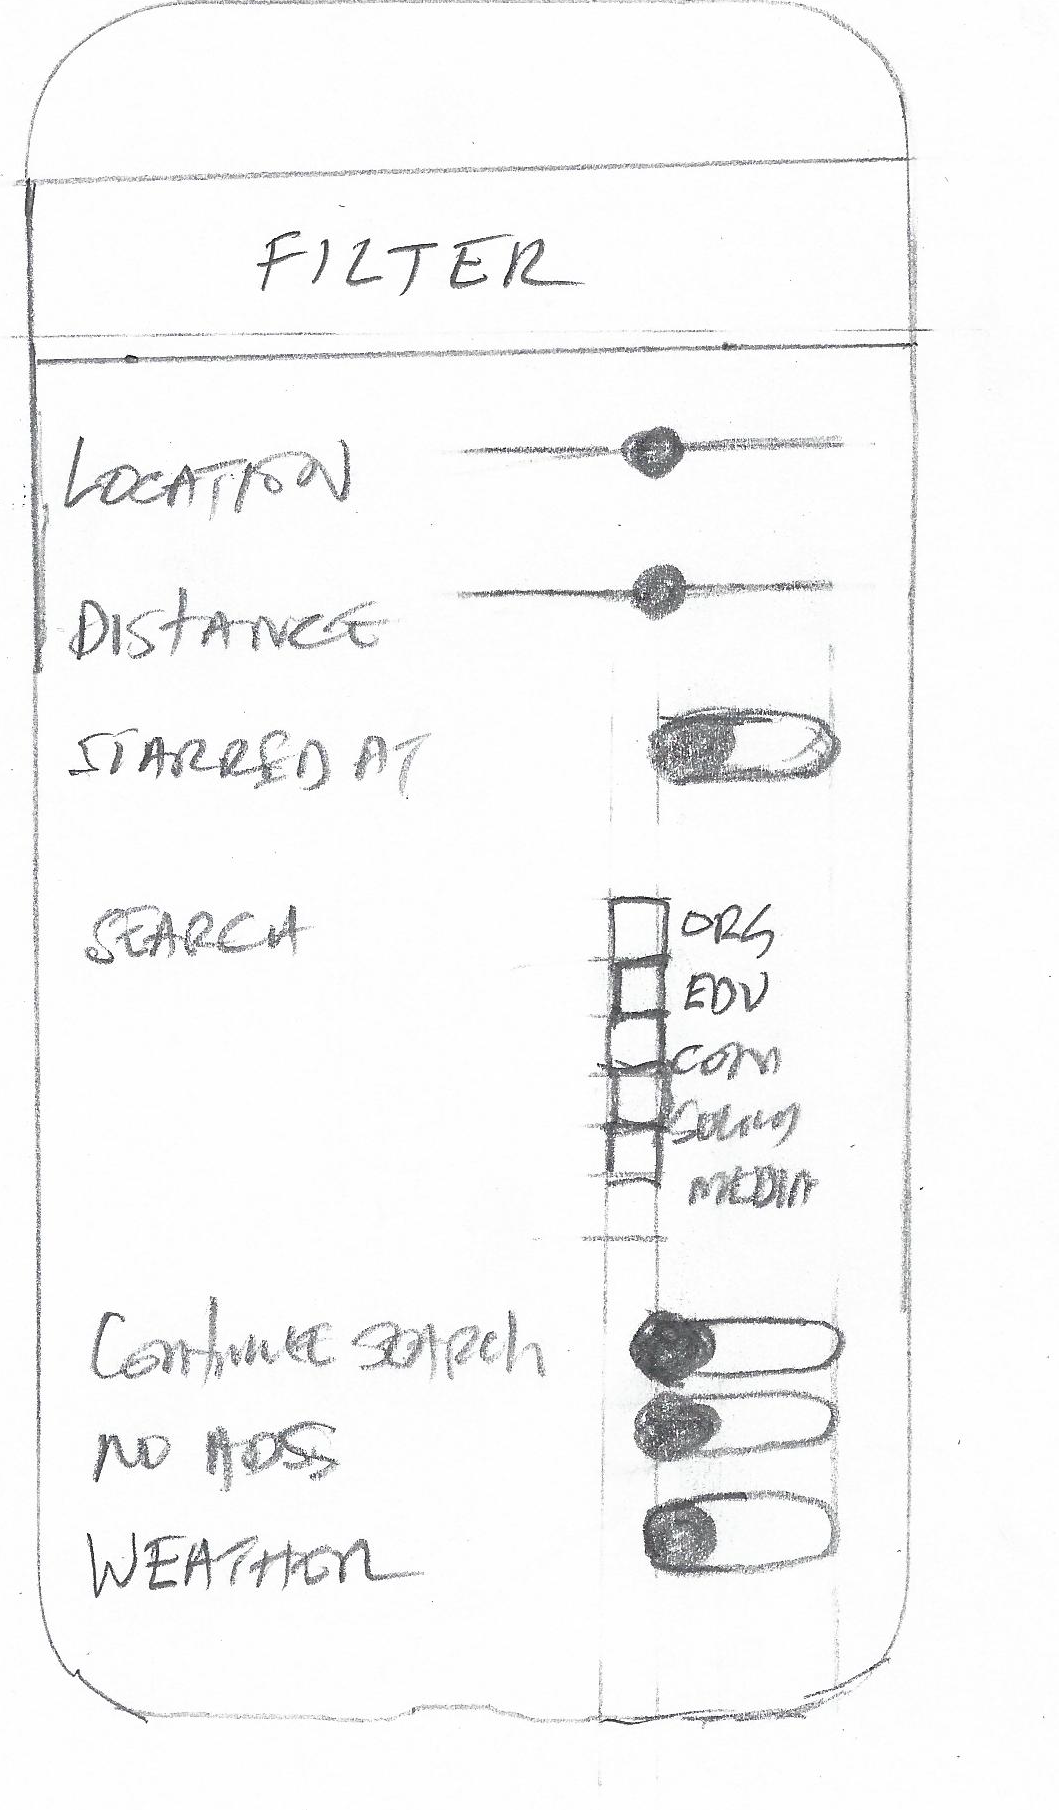 FILTER
LOCATION
DISTANCE
STARRED AT
SEARCH
ORG
EDU
COM
MEDIA
Continue SEARCH
NO ADS
WEATHER